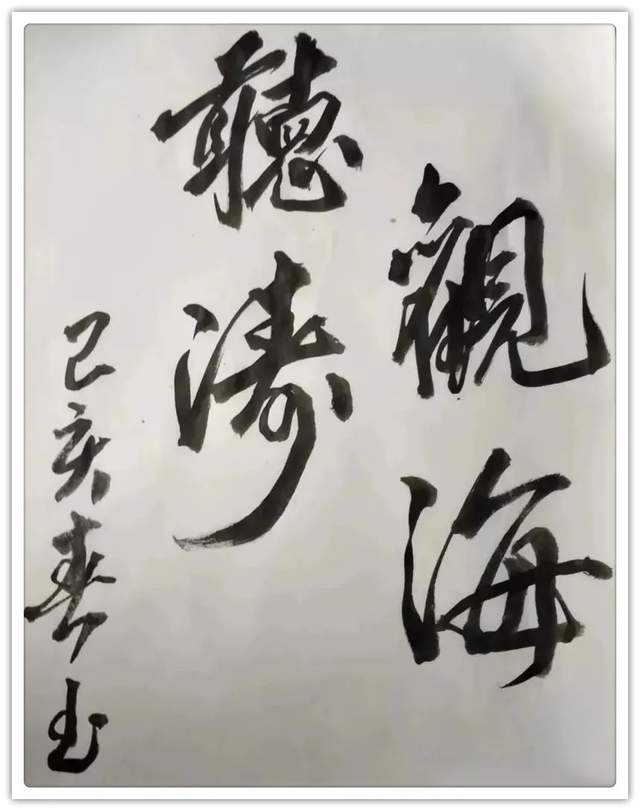 觀海
聽濤
己亥春玉